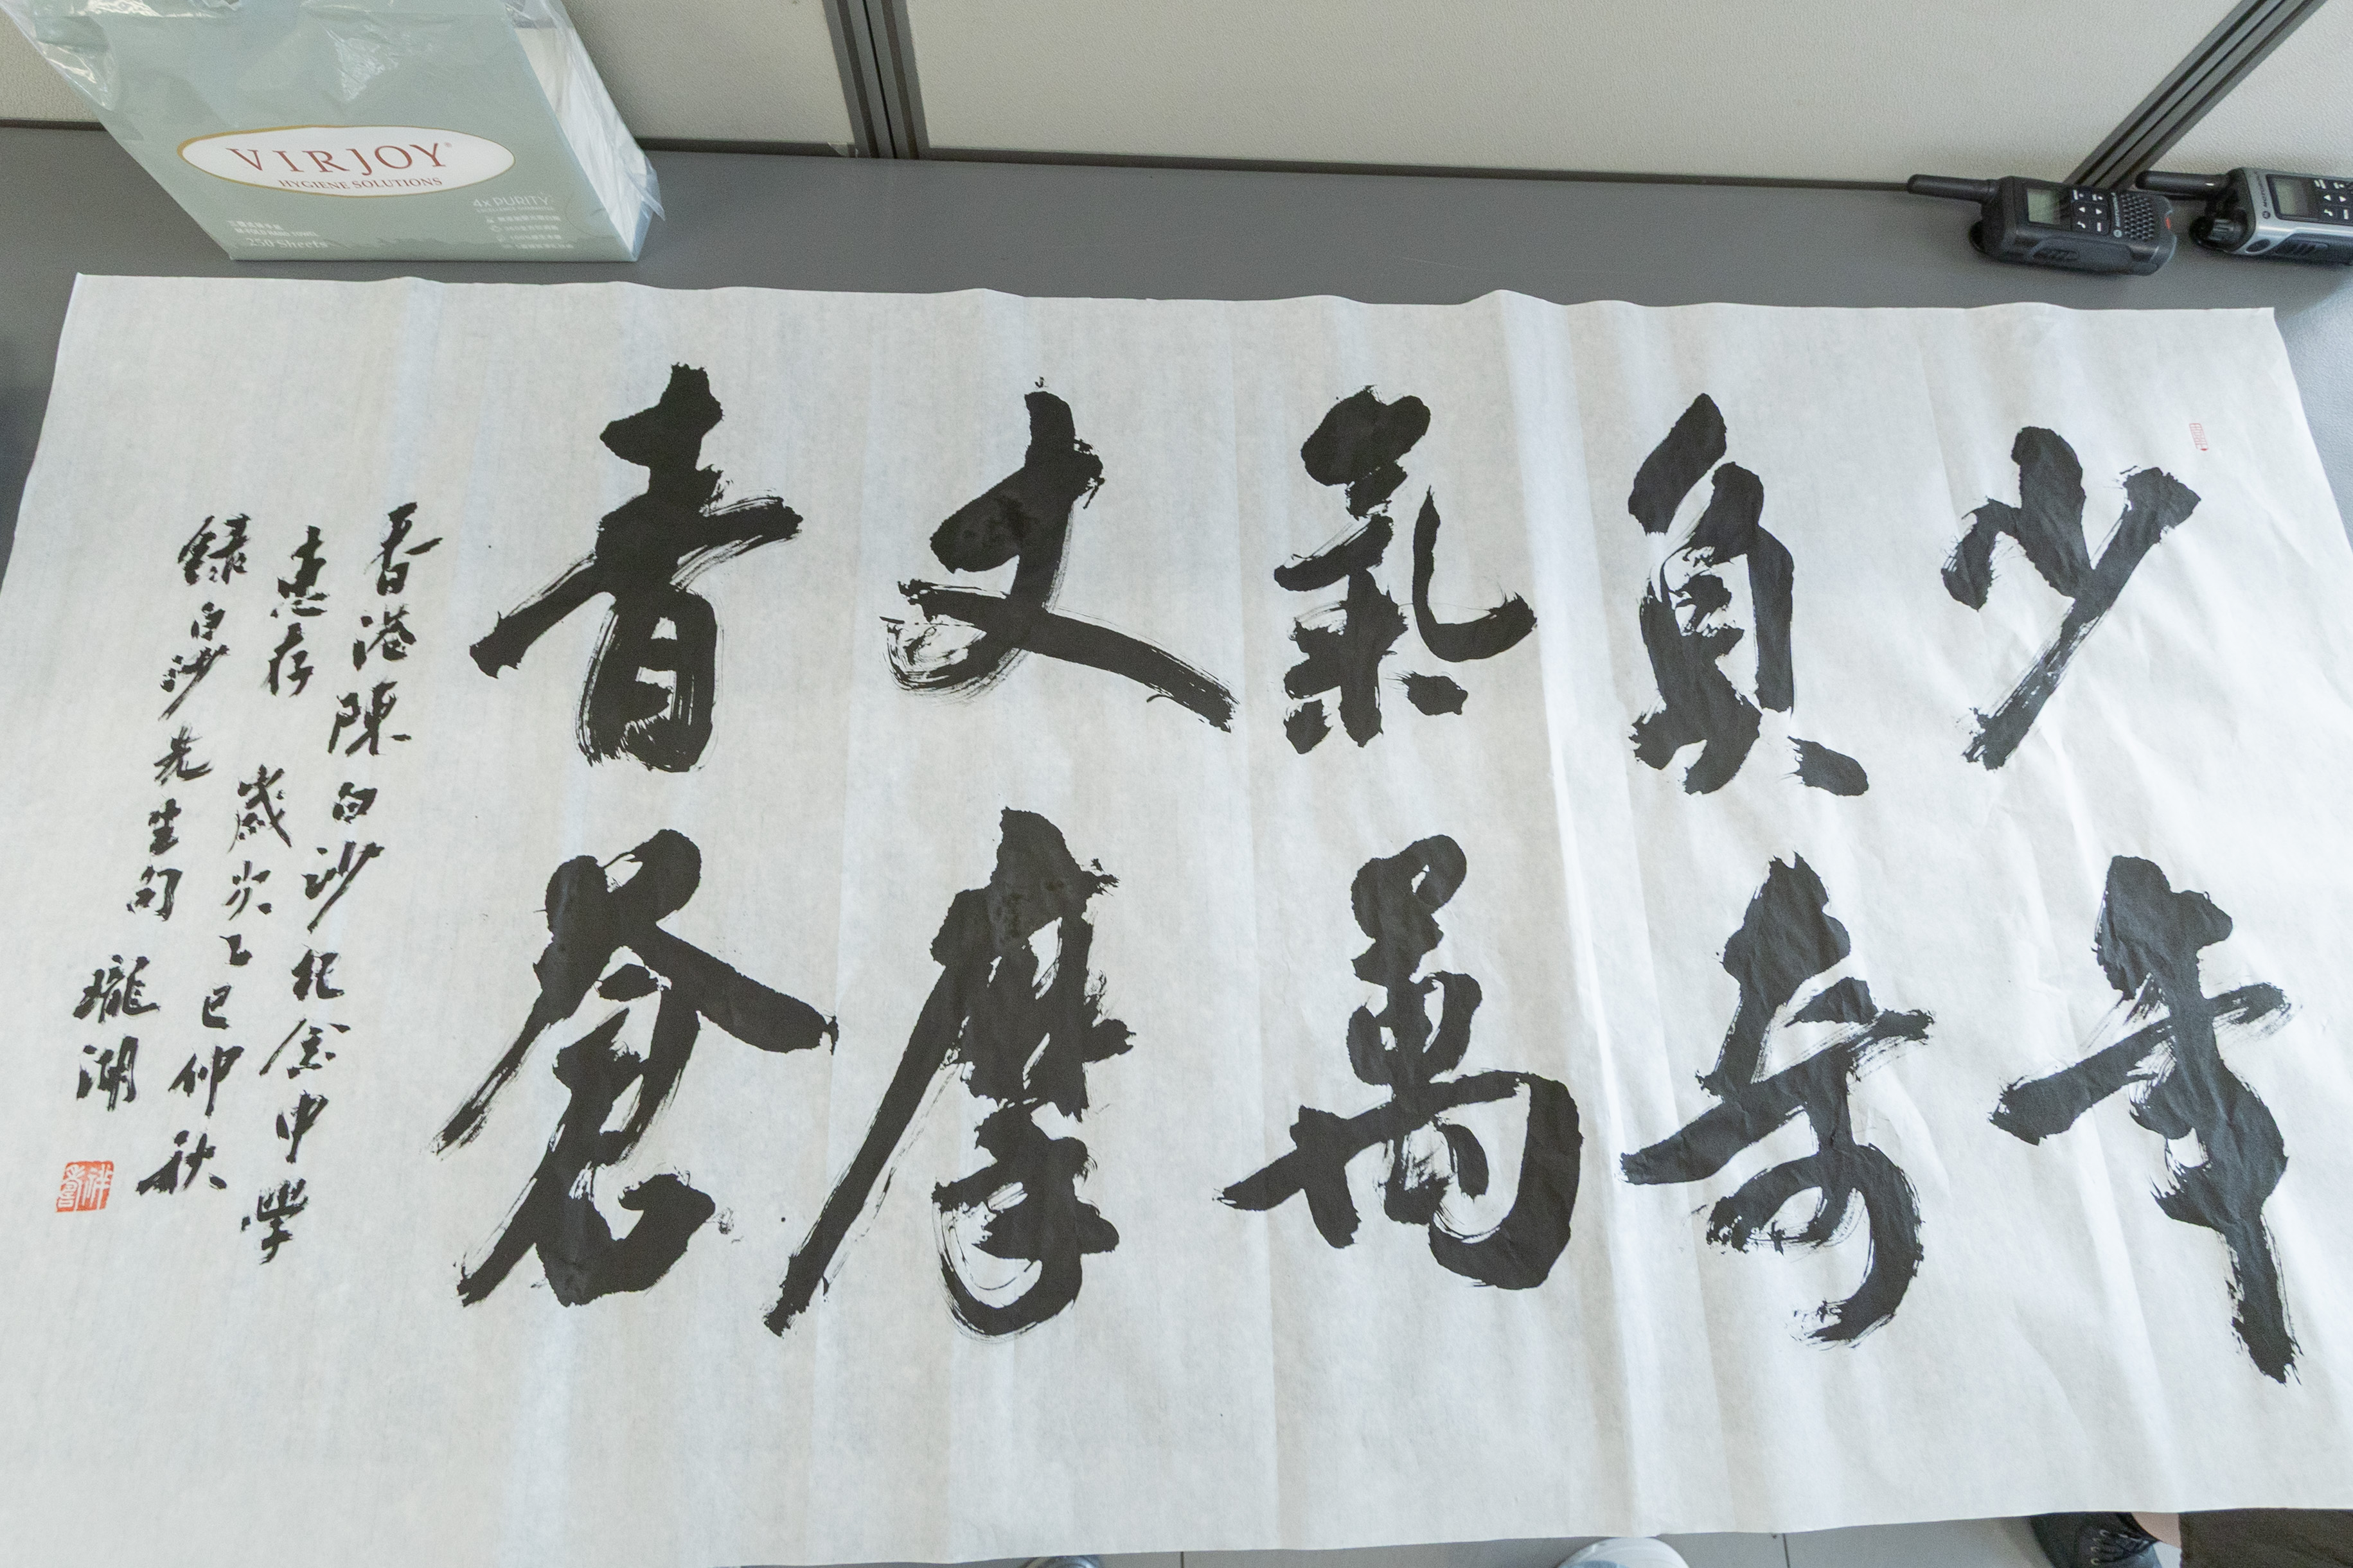 少年
負奇
氣萬
丈摩
青蒼
香港陳白沙紀念中學
惠存 歲次乙巳仲秋
錄白沙先生句 瓏湖
VIRJOY®
HYGIENE SOLUTIONS
4x PURITY
250 Sheets